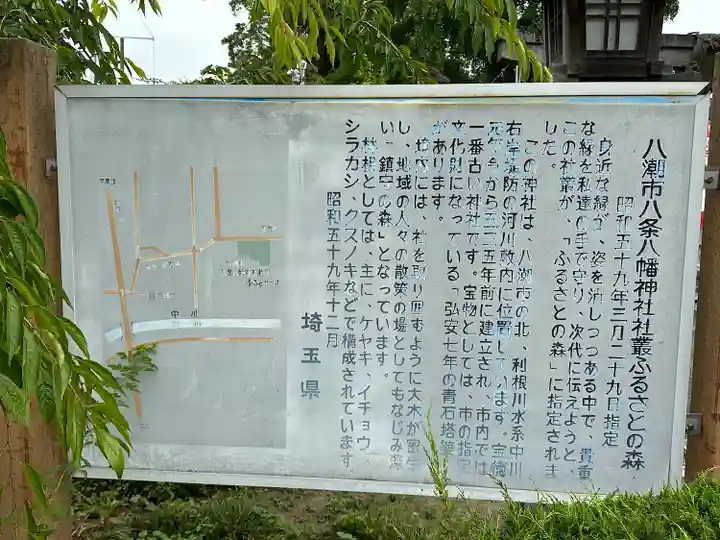 八潮市八条八幡神社社叢ふるさとの森
昭和五十九年三月二十九日指定
身近な緑が、姿を消しつつある中で、貴重
な緑を私達の手で守り、次代に伝えようと、
この社叢が、「ふるさとの森」に指定されま
した。
この神社は、八潮市の北、利根川水系中川
右岸堤防の河川敷内に位置しています。宝幢
元年今から五三五年前に建立され、市内では
一番古い神社です。宝物としては、市の指定
文化財になっている「弘安七年の青石塔婆
があります。
境内には、社を取り囲むように大木が密生
し、地域の人々の散策の場としてもなじみ深
い「鎮守の森」となっています。
林相としては、主に、ケヤキ、イチョウ、
シラカシ、クスノキなどで構成されています。
昭和五十九年十二月
埼玉県
中川